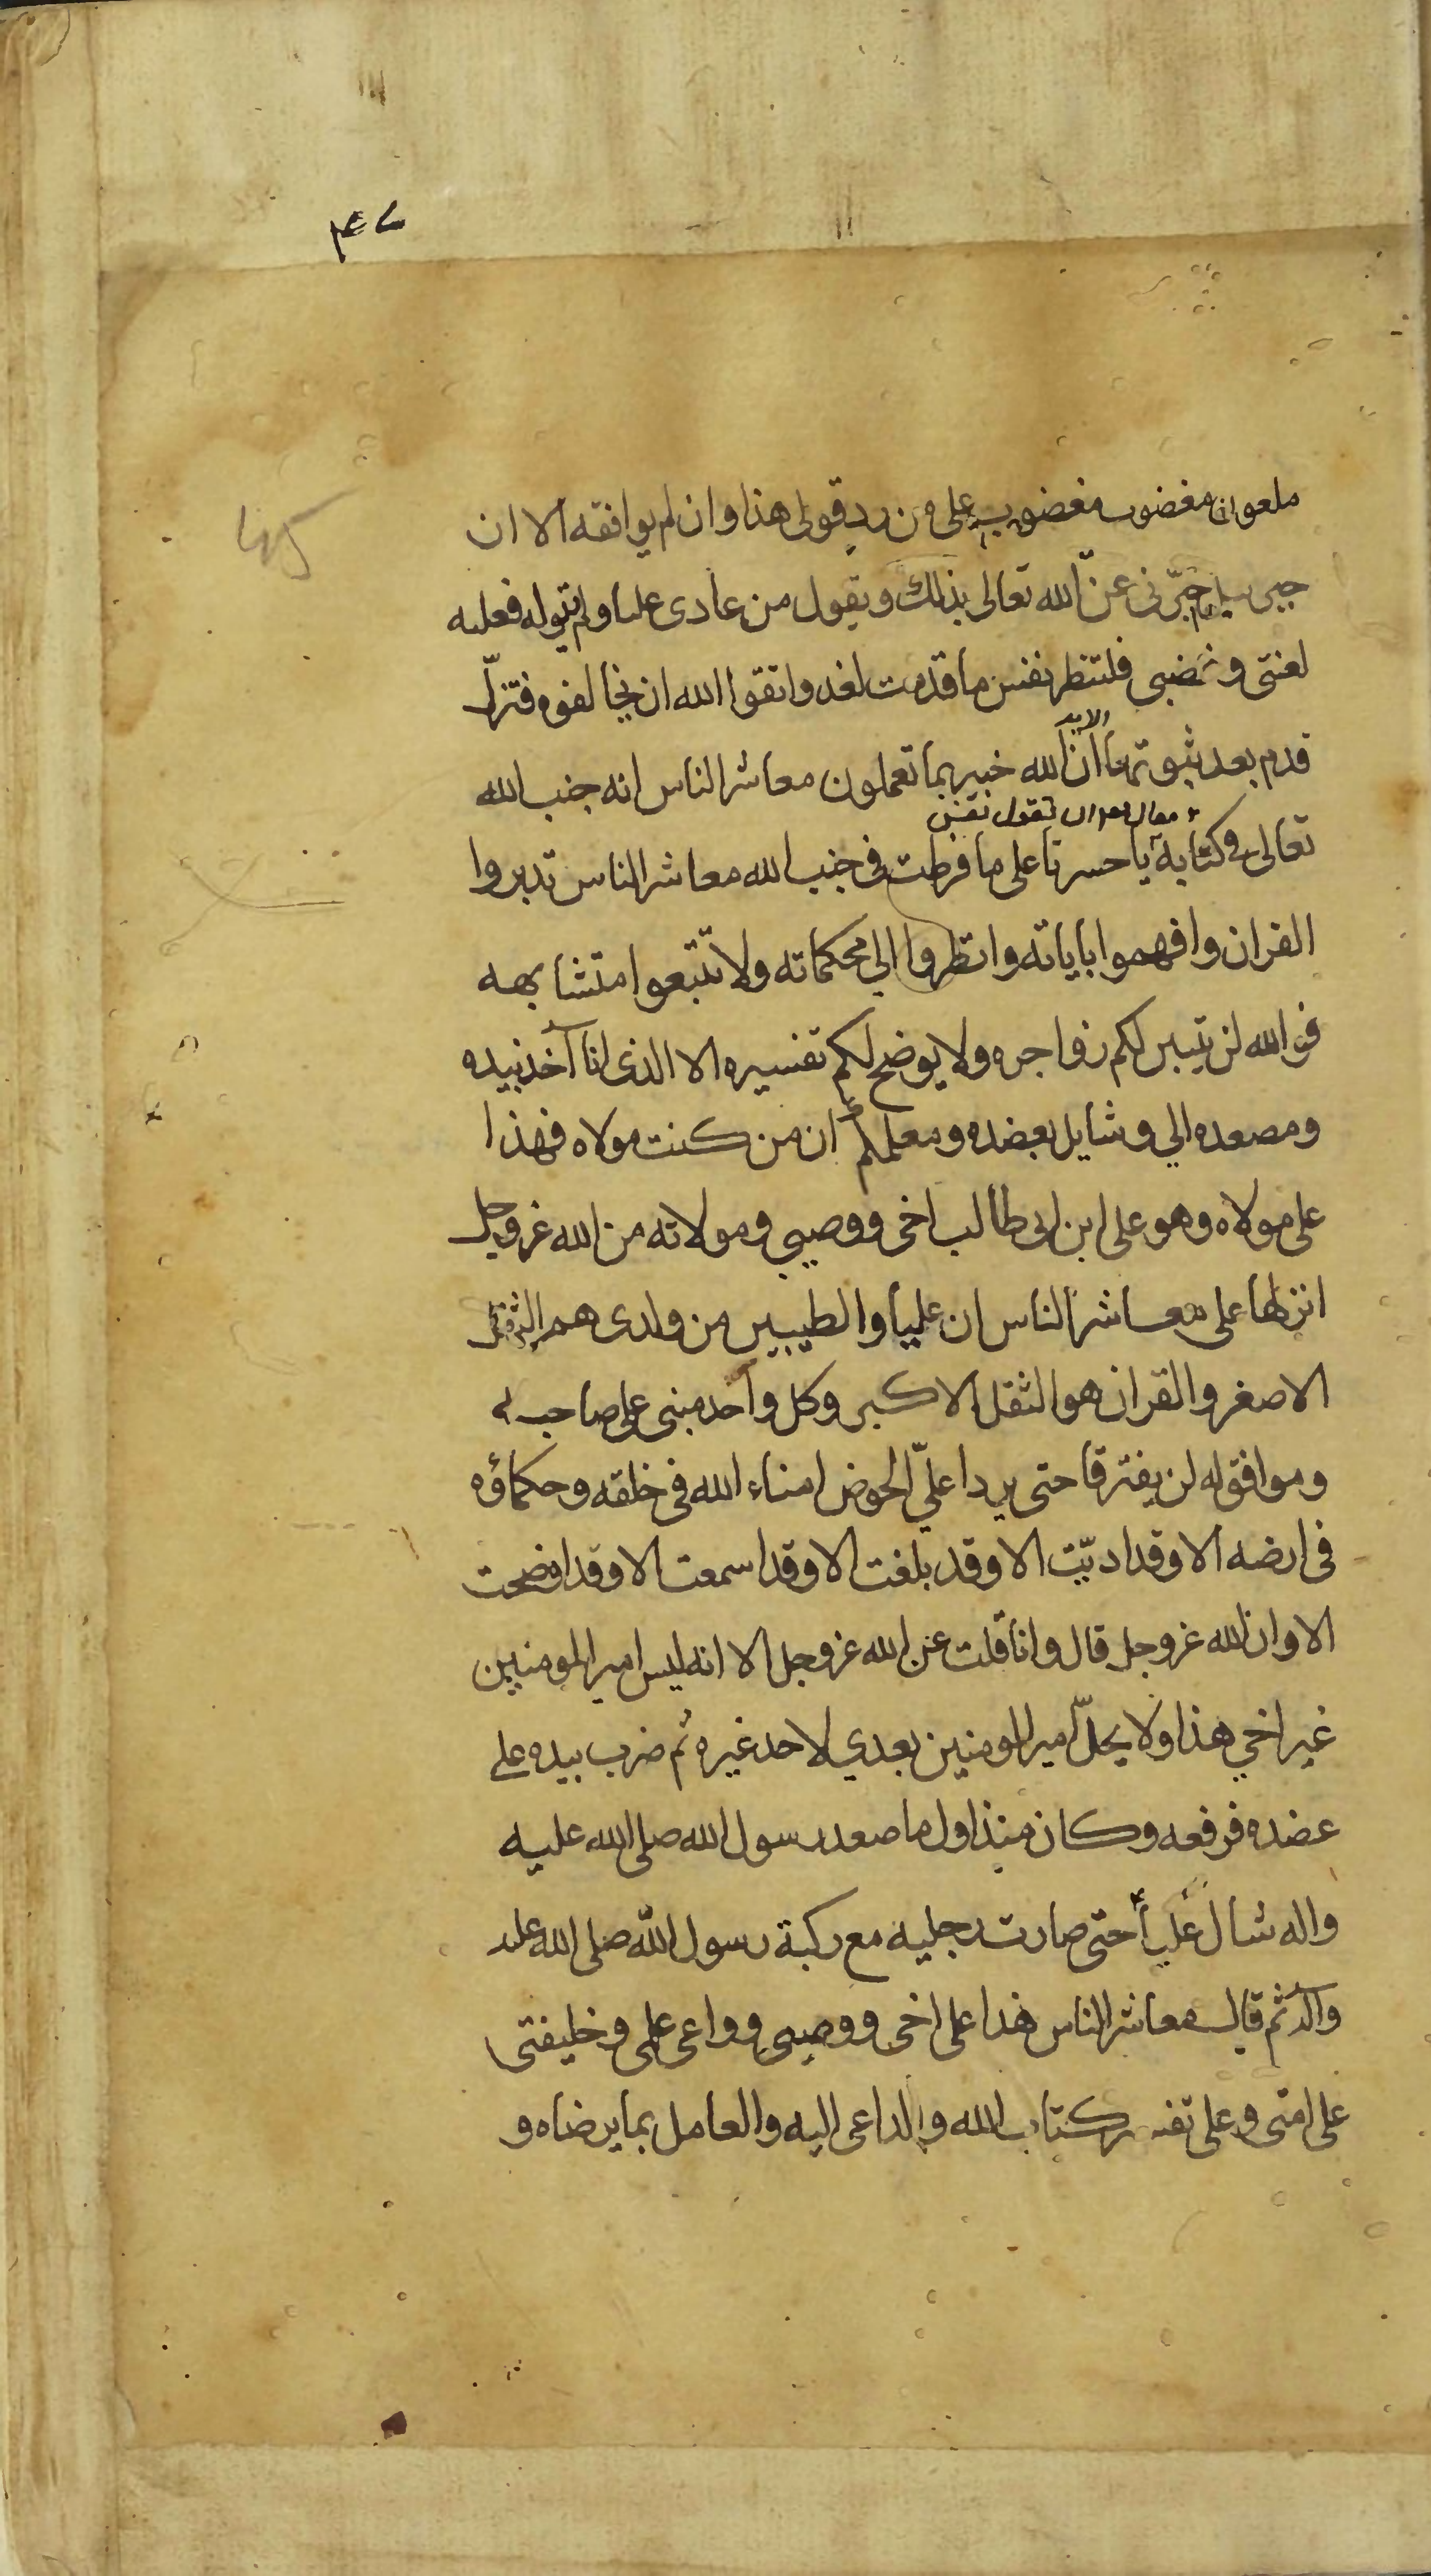 ملعون مغضوب مغضوب على من رد قولى هذا وان لم يوافقه الا ان
خبرنى عن الله تعالى بذلك ويقول من عادى عليا ولم يتوله فعليه
لعنتى وغضبى فلتنظر نفس ما قدمت لغد واتقوا الله ان تخالفوه فتزل
قدم بعد ثبوتها ان الله خبير بما تعملون معاشر الناس انه جنب الله
ان تقول نفس
تعالى فى كتابه يا حسرتا على ما فرطت فى جنب الله معاشر الناس تدبروا
القران وافهموا باياته وانظروا الي محكماته ولا تتبعوا متشابهه
فوالله لن يتبين لكم زواجره ولا يوضح لكم تفسيره الا الذى انا آخذ بيده
ومصعده الي وشايل بعضده ومعلمكم ان من كنت مولاه فهذا
على مولاه وهو على ابن ابى طالب اخى ووصيى ومولاته من الله عز وجل
انزلها على معاشر الناس ان عليا والطيبين من ولدى هم الثقل
الاصغر والقران هو الثقل الاكبر وكل واحد مبنى على صاحبه
وموافق له لن يفترقا حتى يردا علىّ الحوض امناء الله فى خلقه وحكماؤه
فى ارضه الا وقد اديّت الا وقد بلغت الا وقد اسمعت الا وقد اوضحت
الا وان الله عز وجل قال وانا قلت عن الله عز وجل الا انه ليس امير المومنين
غير اخي هذا ولا يحلّ امير المومنين بعدي لاحد غيره ثم ضرب بيده على
عضده فرفعه وكان منذ اول ما صعد رسول الله صلى الله عليه
واله شال علياً حتى صارت رجليه مع ركبة رسول الله صلى الله عليه
وآله ثم قال معاشر الناس هذا على اخى ووصيى وواعى علمى وخليفتى
على امتى وعلى تفسير كتاب الله والداعى اليه والعامل بما يرضاه و